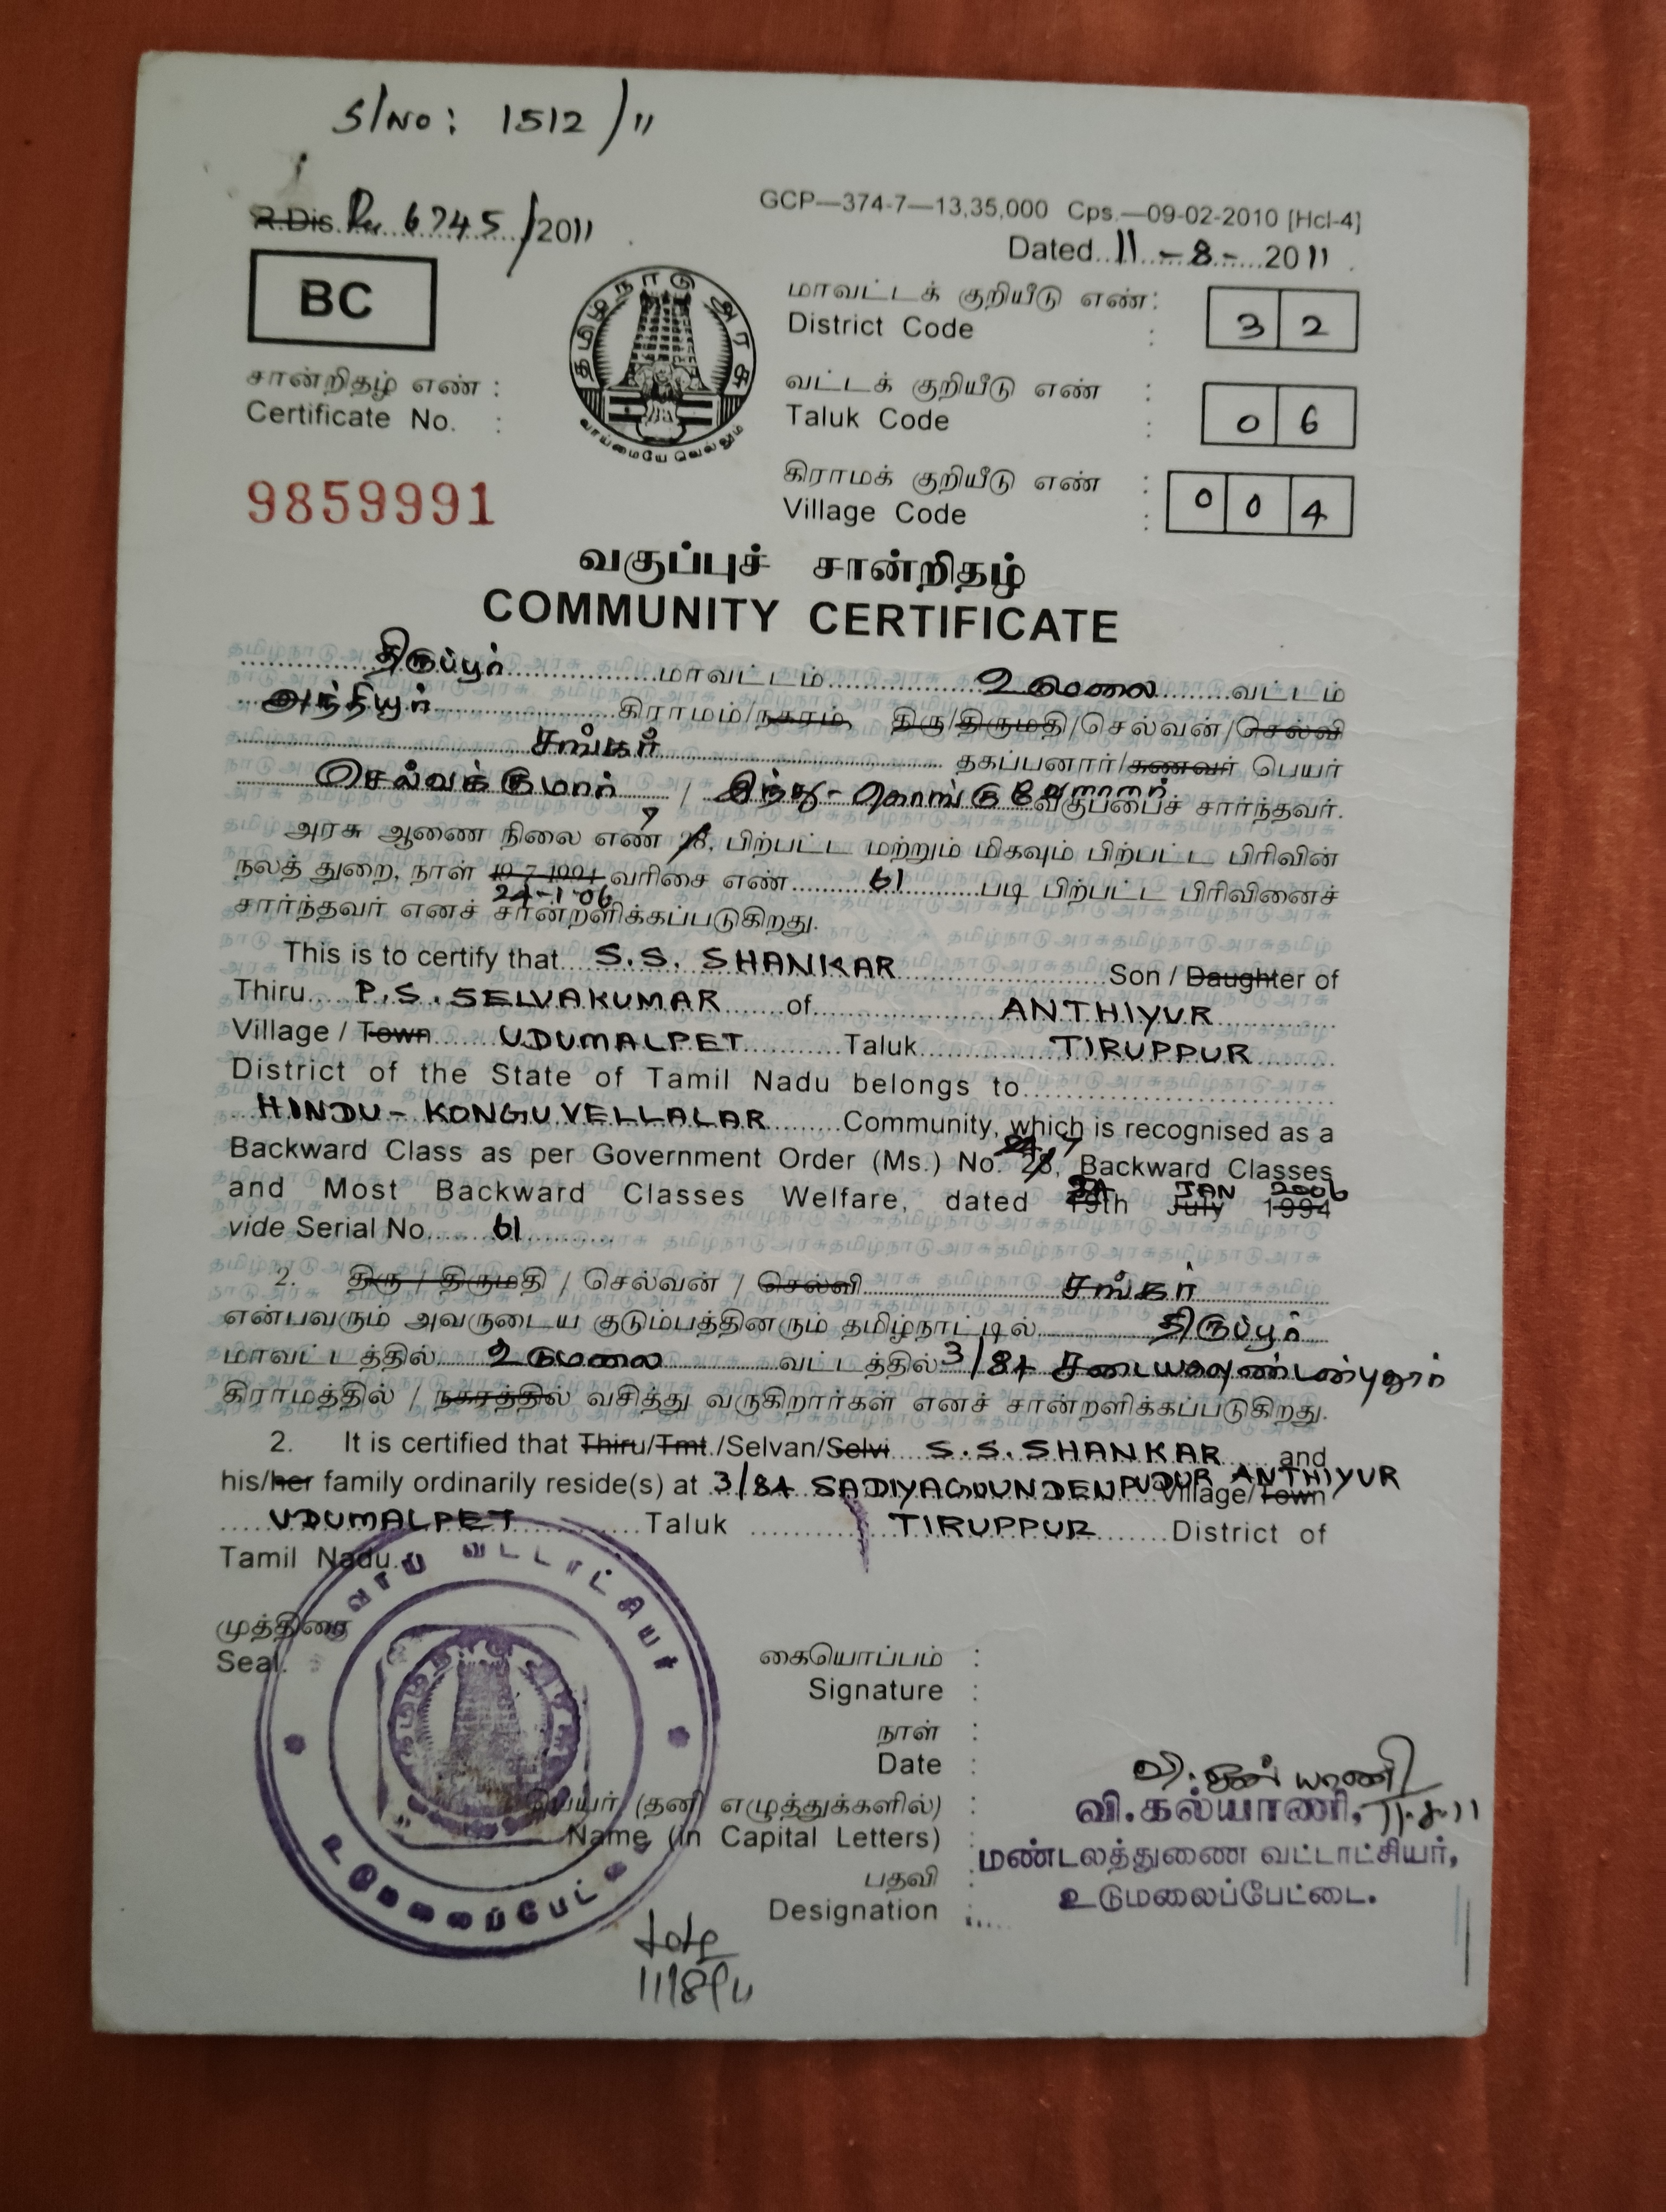 S/No: 1512/11
R.Dis. 6745/2011
GCP—374-7—13,35,000 Cps.—09-02-2010 [Hcl-4]
Dated 11-8-2011
BC
தமிழ்நாடு அரசு
வாய்மையே வெல்லும்
மாவட்டக் குறியீடு எண் :
District Code : 32
சான்றிதழ் எண் :
Certificate No. :
வட்டக் குறியீடு எண் :
Taluk Code : 06
9859991
கிராமக் குறியீடு எண் :
Village Code : 004
வகுப்புச் சான்றிதழ்
COMMUNITY CERTIFICATE
திருப்பூர் மாவட்டம் உடுமலை வட்டம்
அந்தியூர் கிராமம்/நகரம், திரு/திருமதி/செல்வன்/செல்வி
சங்கர் தகப்பனார்/கணவர் பெயர்
செல்வக்குமார் / இந்து - கொங்கு வேளாளர் வகுப்பைச் சார்ந்தவர்.
அரசு ஆணை நிலை எண் 7 28, பிற்பட்ட மற்றும் மிகவும் பிற்பட்ட பிரிவின்
நலத் துறை, நாள் 19-7-1994 வரிசை எண் 61 படி பிற்பட்ட பிரிவினைச்
24-1-06
சார்ந்தவர் எனச் சான்றளிக்கப்படுகிறது.
This is to certify that S.S. SHANKAR Son / Daughter of
Thiru P.S. SELVAKUMAR of ANTHIYUR
Village / Town UDUMALPET Taluk TIRUPPUR
District of the State of Tamil Nadu belongs to
HINDU - KONGU VELLALAR Community, which is recognised as a
Backward Class as per Government Order (Ms.) No. 28, 7 Backward Classes
24 JAN 2006
and Most Backward Classes Welfare, dated 19th July 1994
vide Serial No. 61
2. திரு / திருமதி / செல்வன் / செல்வி சங்கர்
என்பவரும் அவருடைய குடும்பத்தினரும் தமிழ்நாட்டில் திருப்பூர்
மாவட்டத்தில் உடுமலை வட்டத்தில் 3/84 சடையகவுண்டன்புதூர்
கிராமத்தில் / நகரத்தில் வசித்து வருகிறார்கள் எனச் சான்றளிக்கப்படுகிறது.
2. It is certified that Thiru/Tmt./Selvan/Selvi S.S. SHANKAR and
his/her family ordinarily reside(s) at 3/84 SADIYAGOUNDENPUDUR ANTHIYUR Village/Town
UDUMALPET Taluk TIRUPPUR District of
Tamil Nadu.
வட்டாட்சியர்
முத்திரை
Seal.
கையொப்பம் :
Signature :
நாள் :
Date :
பெயர் (தனி எழுத்துக்களில்) :
Name (in Capital Letters) :
பதவி :
Designation :
வி.கல்யாணி, 11.8.11
மண்டலத்துணை வட்டாட்சியர்,
உடுமலைப்பேட்டை.
உடுமலைப்பேட்டை
11/8/11